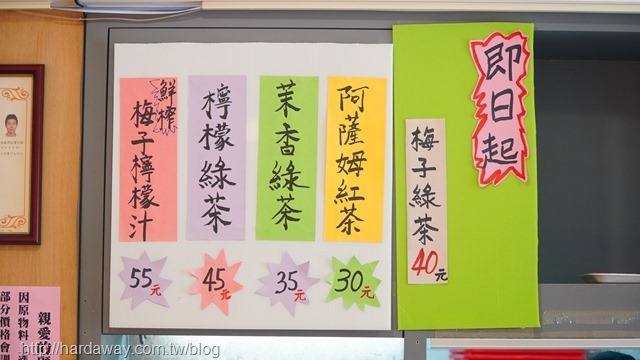 即日起
梅子綠茶
40元
阿薩姆紅茶
30元
茉香綠茶
35元
檸檬綠茶
45元
鮮榨
梅子檸檬汁
55元
親愛的
因原物料
部分價格會調
http://hardaway.com.tw/blog